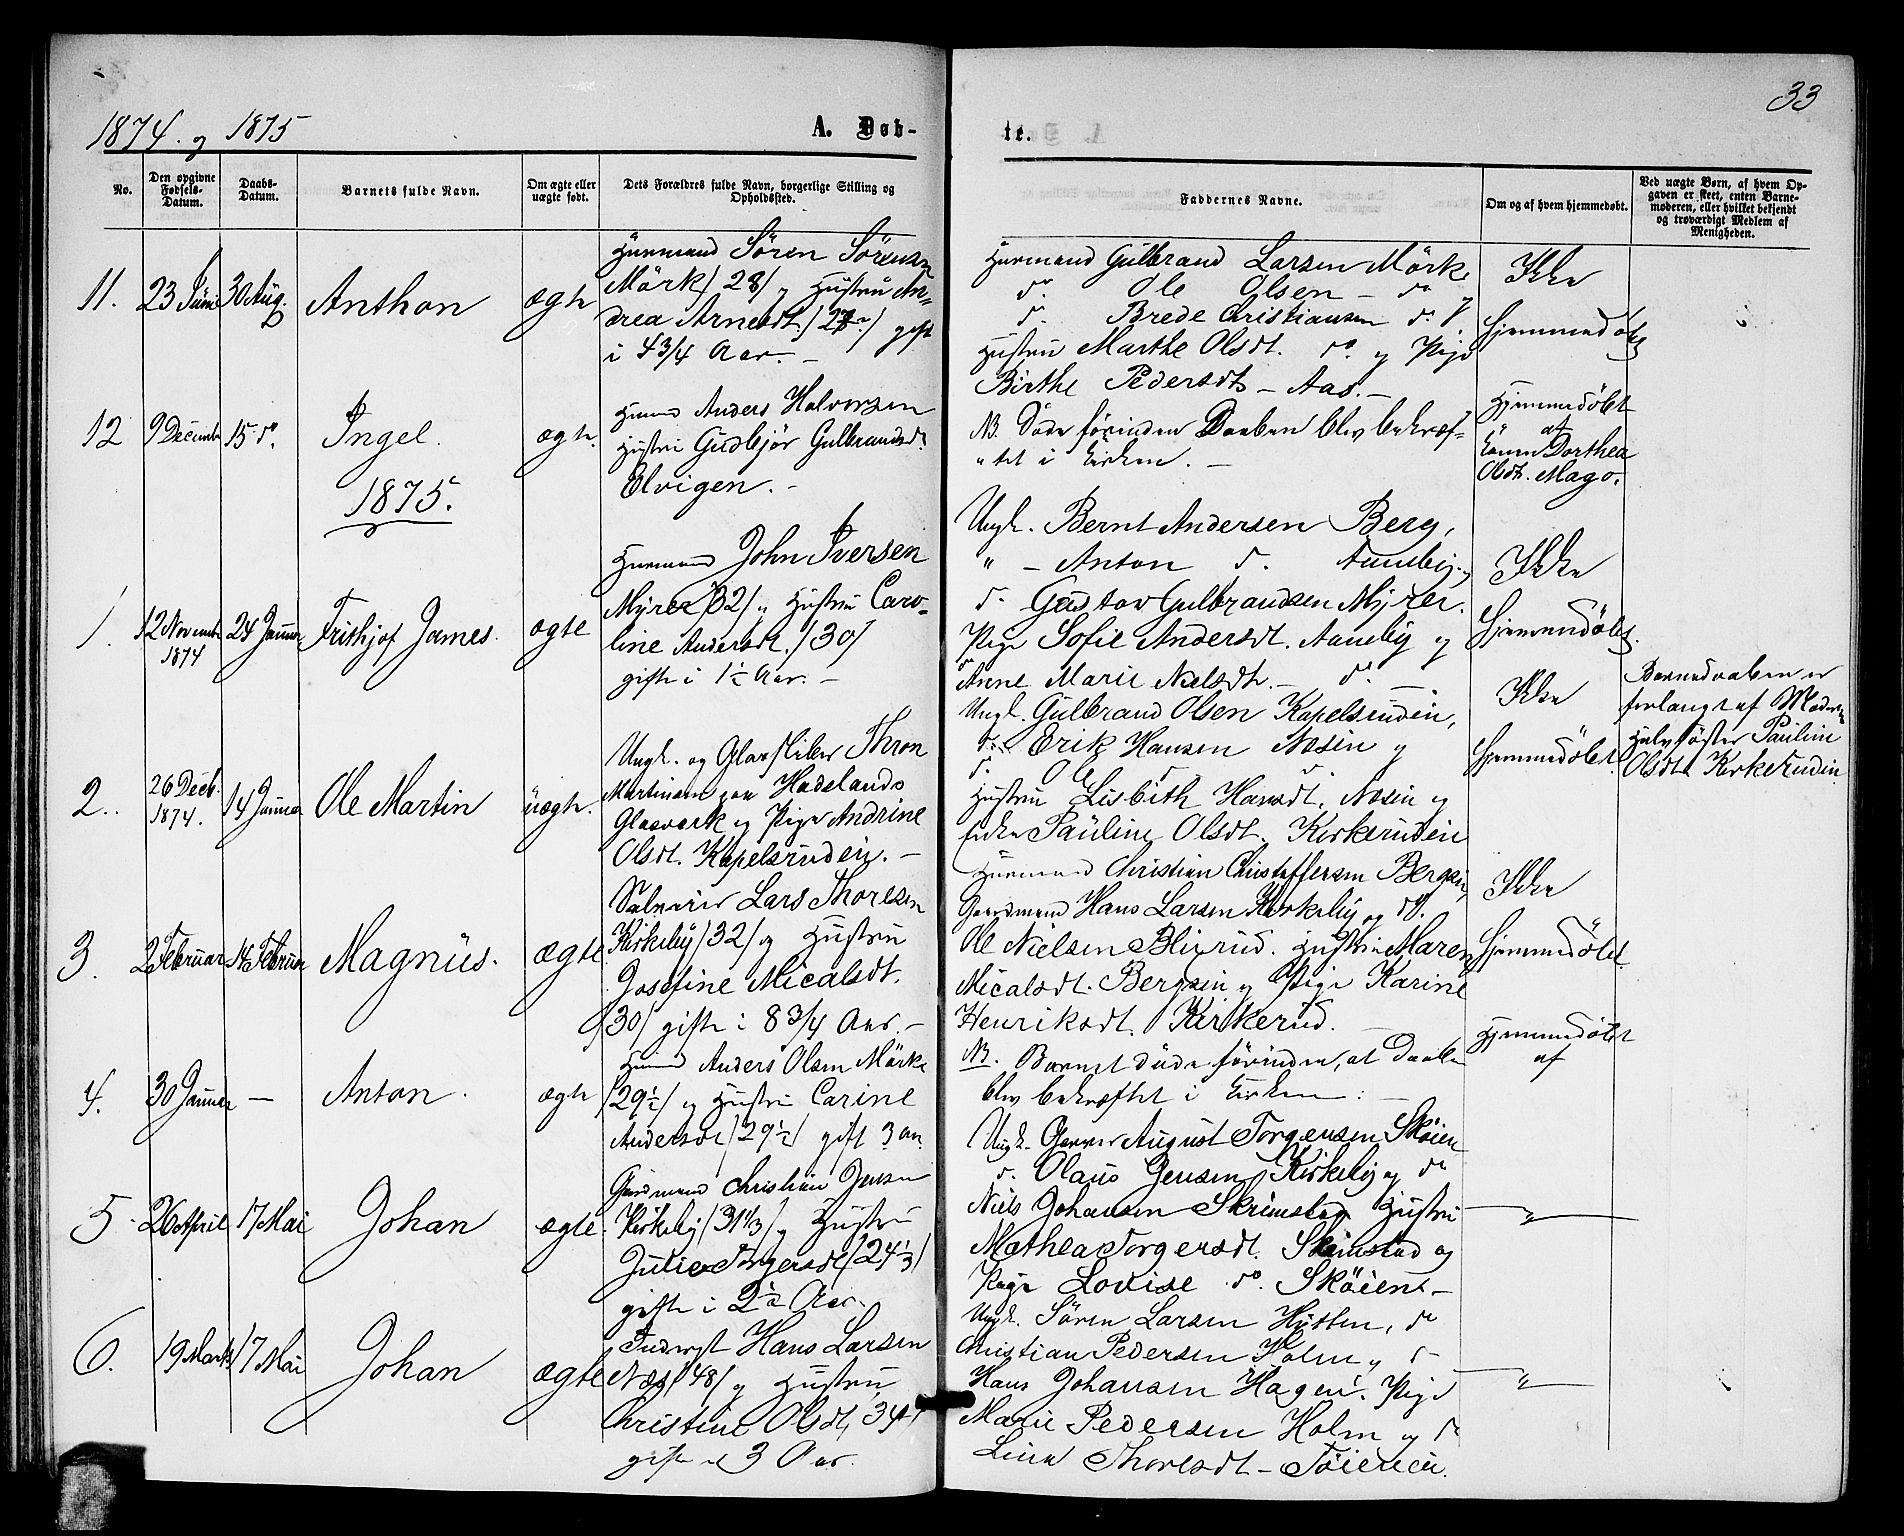 33
1874. og 1875
A. Døb-
te.
No.
Den opgivne Fødsels-Datum.
Daabs-Datum.
Barnets fulde Navn.
Om ægte eller uægte født.
Dets Forældres fulde Navn, borgerlige Stilling og Opholdssted.
Faddernes Navne.
Om og af hvem hjemmedøbt.
Ved uægte Børn, af hvem Opgaven er skeet, enten Barnemoderen, eller hvilket bekjendt og troværdigt Medlem af Menigheden.
11.
23 Juni
30 Aug.
Anthon
ægte
Huusmand Sören Sörensen
Mörk /28/ og Hustru An-
drea Arnesdt. gift
i 4 3/4 Aar. -
Huusmand Gulbrand Larsen Mörk
do. Ole Olsen - do
do. Brede Christiansen do. /
Hustru Marthe Olsdt. do. og Pige
Birthe Pedersdt - Aas. -
Ikke
hjemmedøbt
12
9 Decembr
15 do.
Ingel.
ægte.
Huusmd Anders Halvorsen
Hustru Gudbjör Gulbrandsdt
Elvigen. -
NB. Døde förinden Daaben blev bekræf-
tet i Kirken. -
Hjemmedöbt
af
Konen Dorthea
Olsdt. Mago.
1875.
1.
12 November
1874
24 Januar
Frithjof James.
ægte
Huusmand John Iversen
Myrer /32/ og Hustru Caro-
line Andersdt. /30/
gifte i 1½ Aar. -
Ungk. Bernt Andersen Berg,
" - Anton do. Aaneby og
do. Gustav Gulbrandsen Myrer.
Pige Sofie Andersdt. Aaneby og
Anne Marie Nielsdt. - do. -
Ikke
hjemmedöbt.
2.
26 Decb.
1874.
14 Januar
Ole Martin
uægte.
Ungk. og Glassliber Thron
Martinsen paa Hadelands
Glasværk og Pige Andrine
Olsdt. Kapelsrudein. -
Ungk. Gulbrand Olsen Kapelsrudein,
do. Erik Hansen Næsin og
do. Ole do. do.
Hustru Lisbeth Hansdt. Næsin og
Enke Pauline Olsdt. Kirkerudein
Ikke
hjemmedöbt.
Barnedaaben er
forlangt af Moderen
Halvsøster Pauline
Olsdt. Kirkerudein
3.
2 Februar
14 Februar
Magnus.
ægte
Lars Thoresen
Kirkeby /32/ og Hustru
Josefine Micalsdt.
/30/ gifte i 8 3/4 Aar. -
Huusmand Christian Christoffersen Bergsin,
Gaardmand Hans Larsen Kirkeby og do.
Ole Nielsen Blixrud. Hustru Maren
Micalsdt. Bergsin og Pige Karine
Henriksdt. Kirkerud. -
Ikke
hjemmedöbt.
4.
30 Januar
-
Anton.
ægte
Huusmd Anders Olsen Mörk
/29½/ og Hustru Carine
Andersdt /29½/ gift 3 Aar.
NB. Barnet døde förinden, at Daaben
blev bekræftet i Kirken: -
Hjemmedöbt
af
5.
26 April
17 Mai
Johan
ægte
Gaardmand Christian Jensen
Kirkeby /31 1/3/ og Hustru
Julie Torgersdt /24 1/3/
gifte i 2½ Aar.
Ungk. August Torgersen Skøien
do. Olaus Jensen Kirkeby og do
Niels Johansen Skrimstad Hustru
Mathea Torgersdt. Skrimstad og
Pige Lovise do. Skøien. -
"
6.
19 Marts
17 Mai
Johan
ægte
Inderst Hans Larsen
Næs /48/ og Hustru
Christine Olsdt, 34
gifte i 3 Aar.
Ungk. Sören Larsen Hytten, do
Christian Pedersen Holm og do
Hans Johansen Hagen. Pige
Marie Pedersen Holm og do
Lina Thoresdt - Töieneie.
"